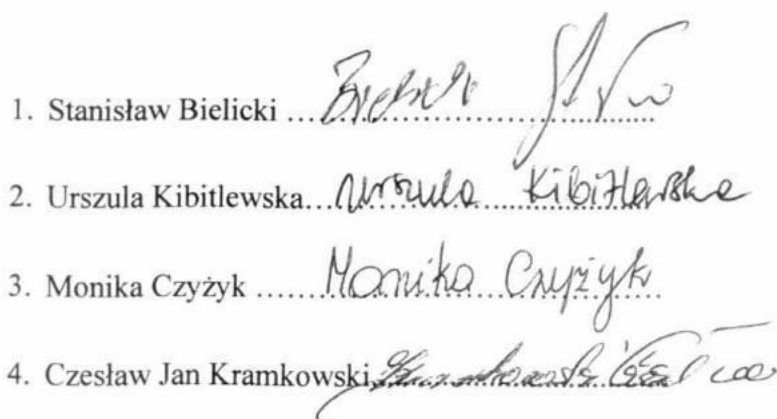 1. Stanisław Bielicki ... Bielicki St
2. Urszula Kibitlewska... Urszula Kibitlewska
3. Monika Czyżyk ...... Monika Czyżyk
4. Czesław Jan Kramkowski Kramkowski Czesław